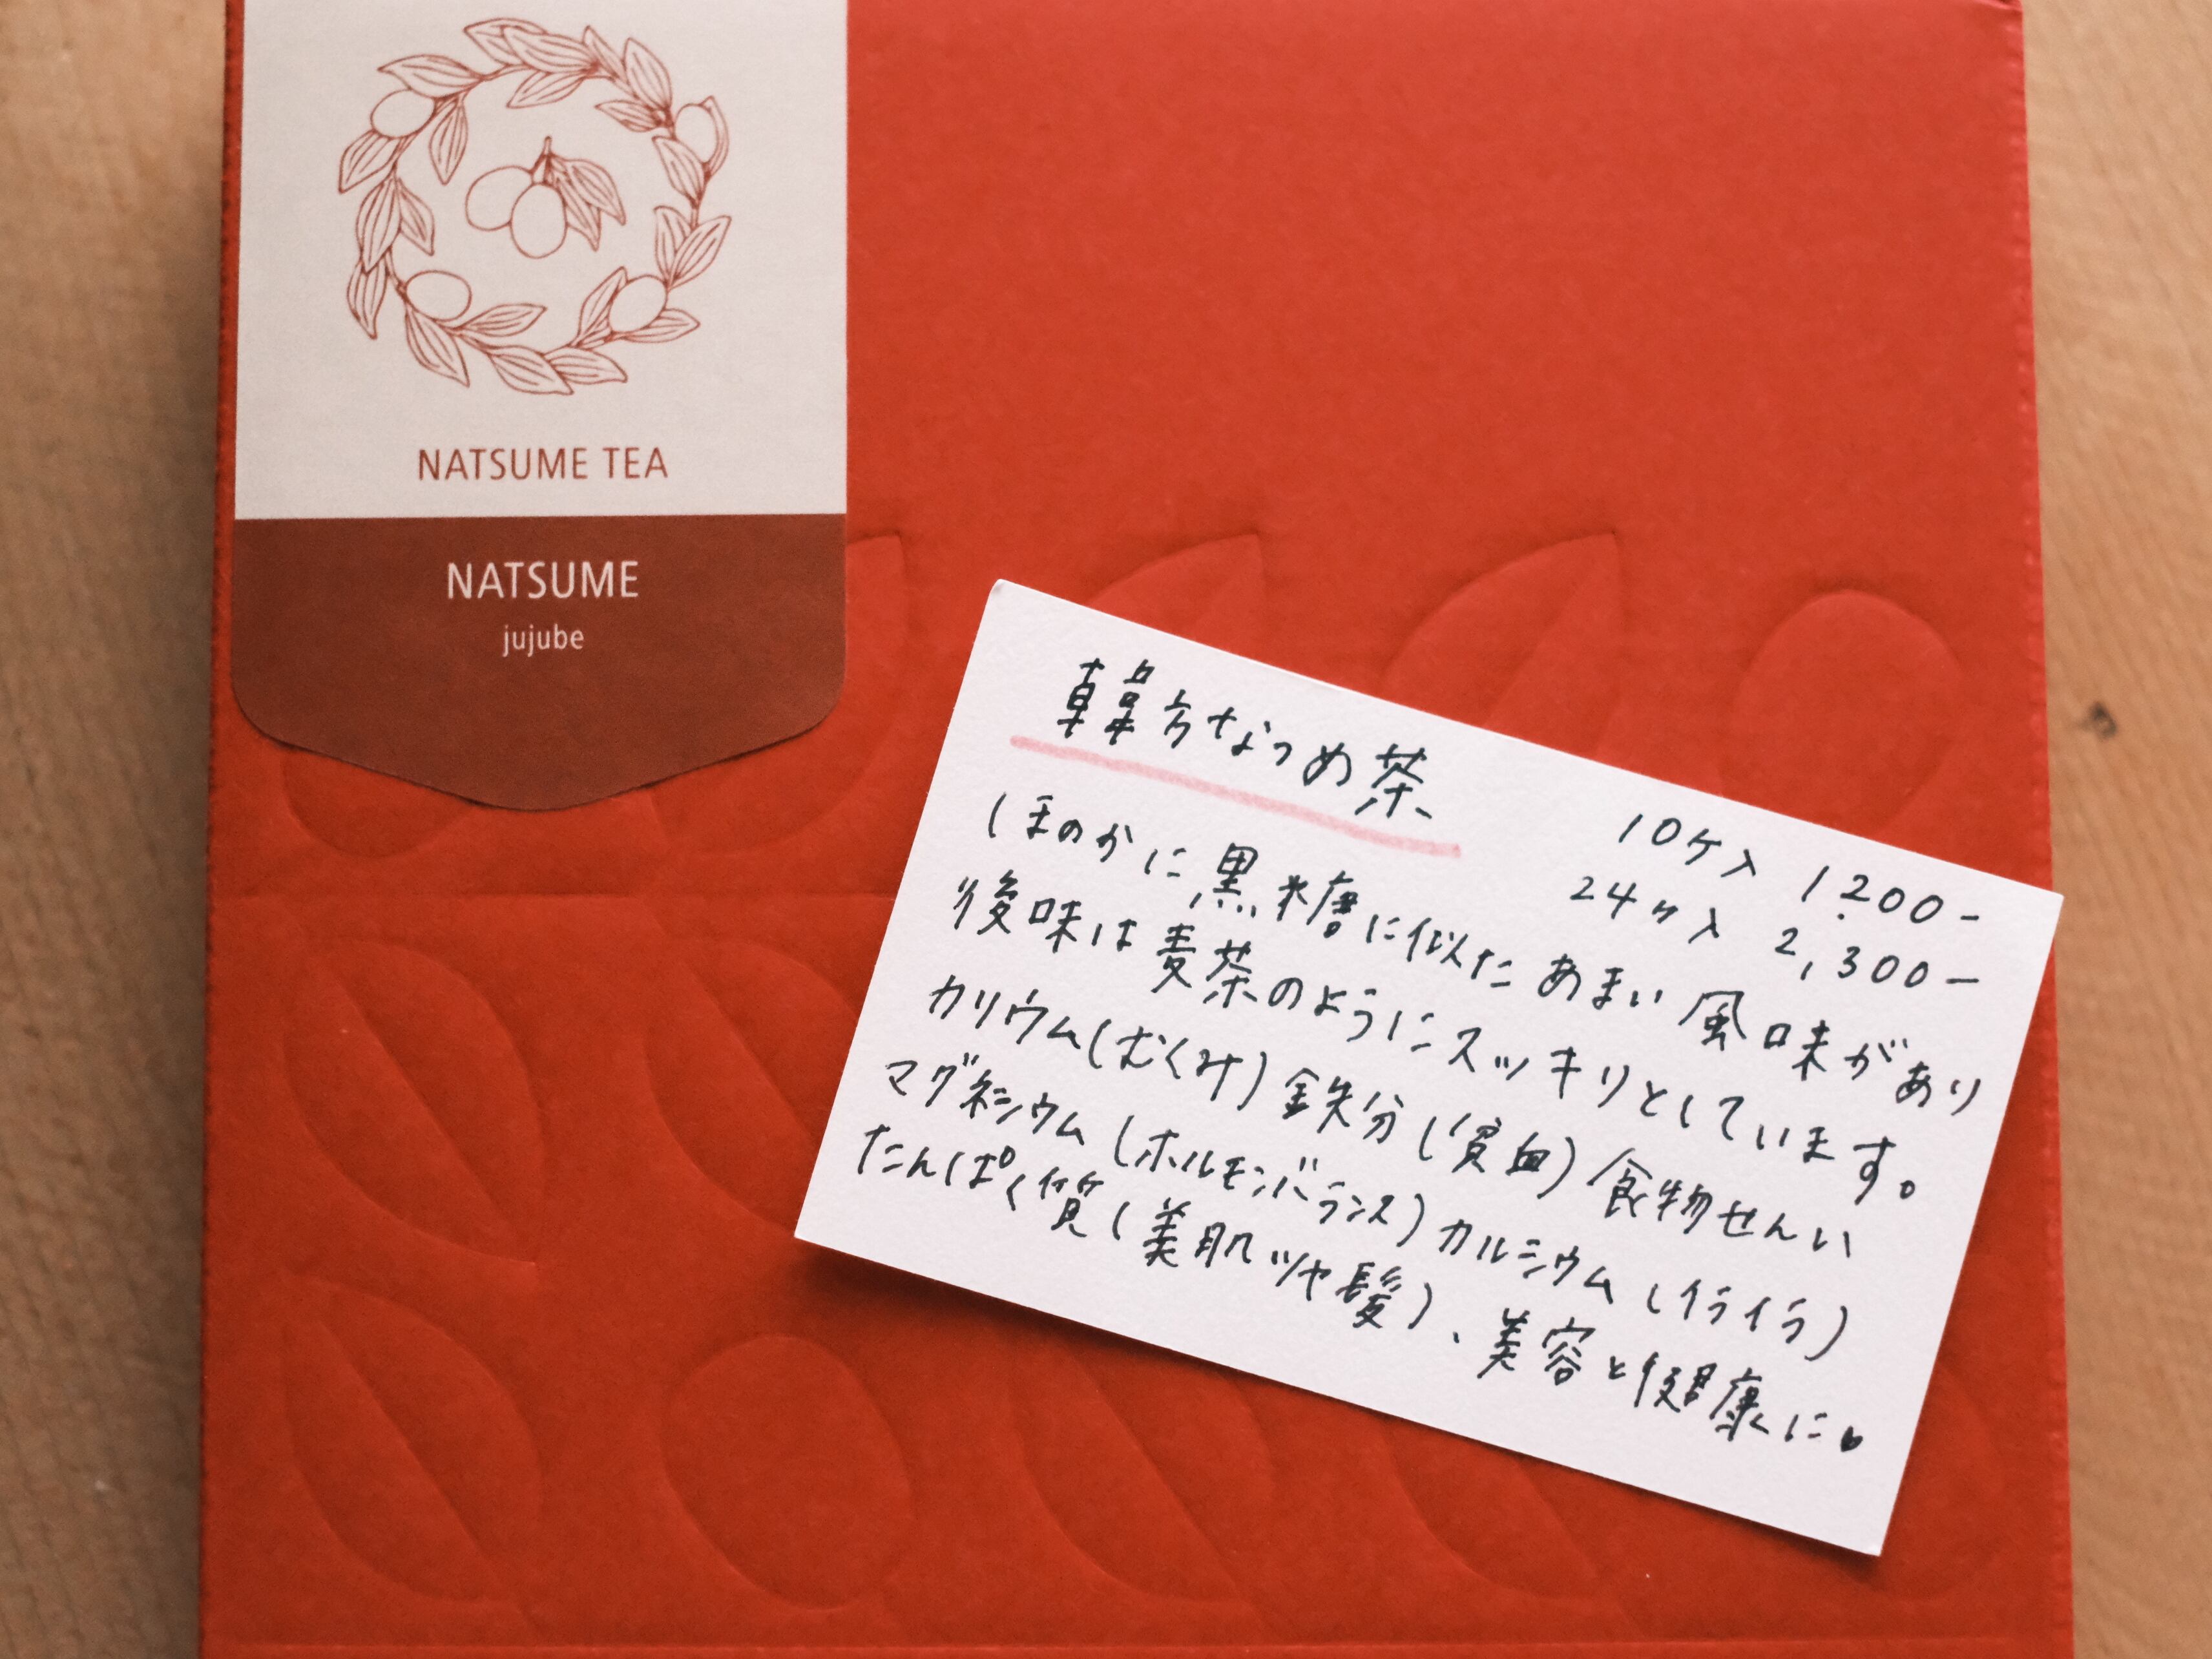 NATSUME TEA
NATSUME
jujube
韓方なつめ茶
10ケ入 1.200-
24ケ入 2,300-
ほのかに黒糖に似たあまい風味があり
後味は麦茶のようにスッキリとしています。
カリウム(むくみ)鉄分(貧血)食物せんい
マグネシウム(ホルモンバランス)カルシウム(イライラ)
たんぱく質(美肌ツヤ髪)、美容と健康に。